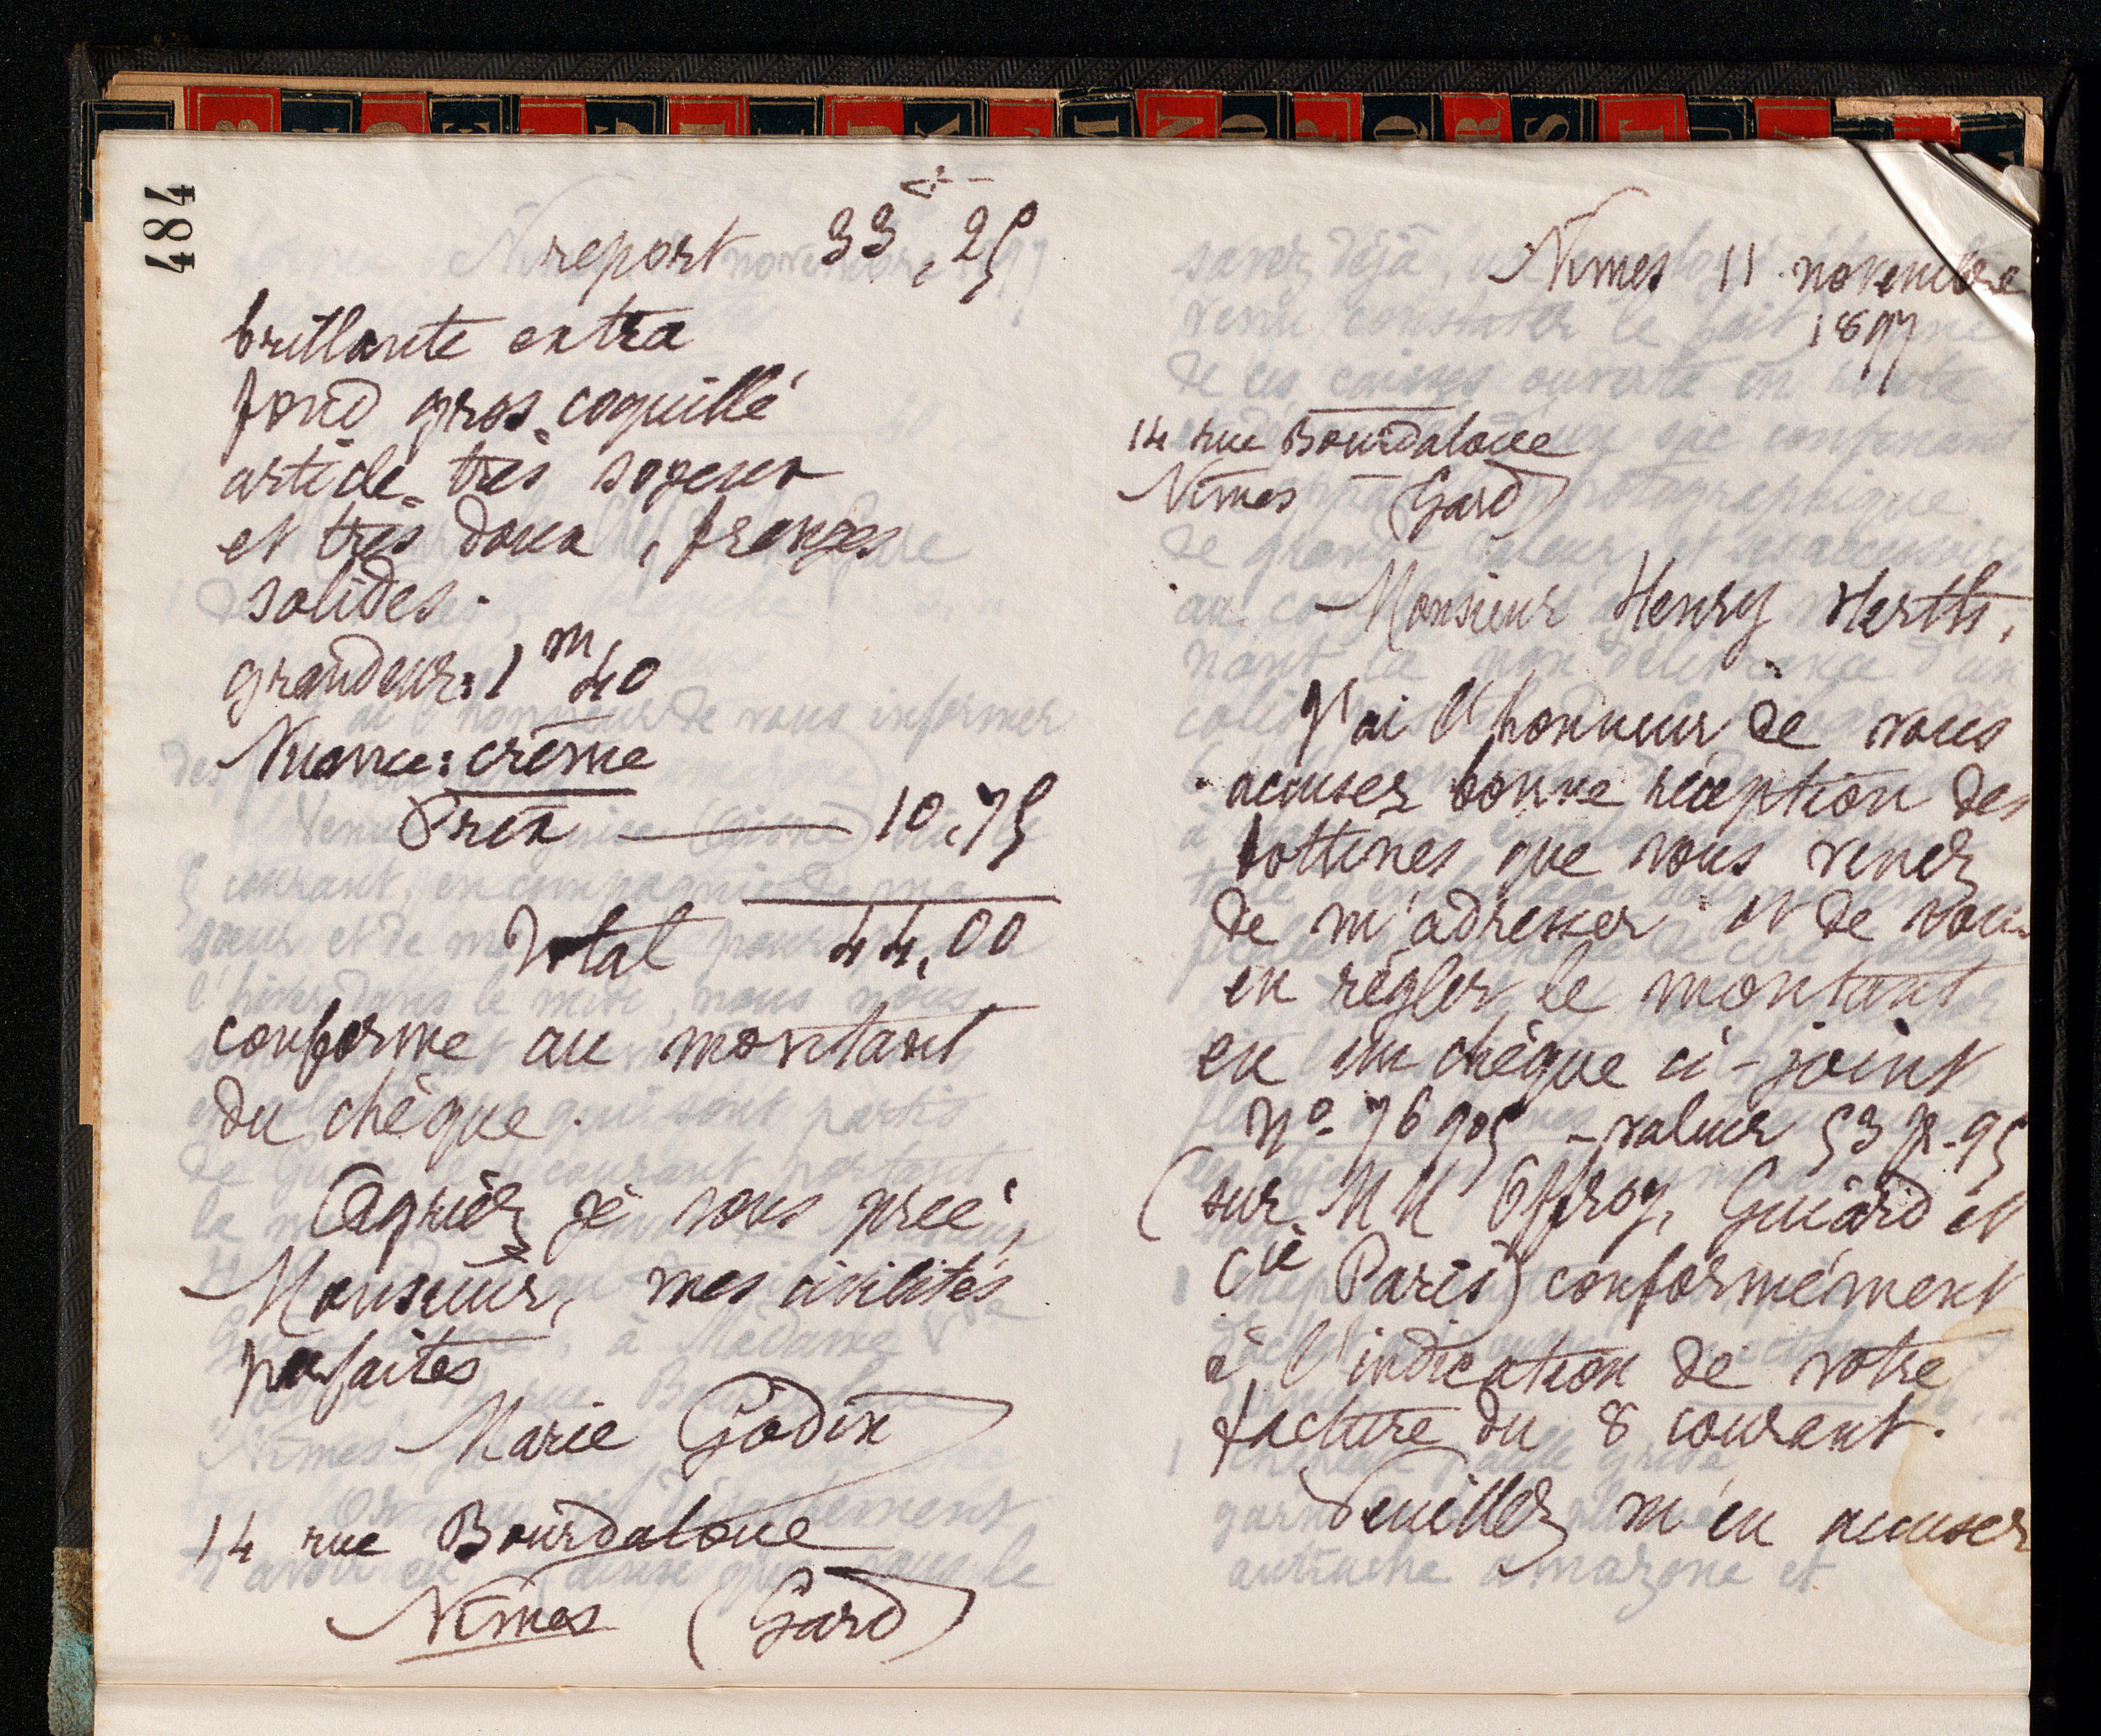 484
report 33,25
brillante extra
fond gros coquillé
article très soyeux
et très doux, franges
solides.
grandeur: 1m40
Nuance: crême
Prix — 10,75
Total 44,00
conforme au montant
du chèque.
Agréez je vous prie,
Monsieur, mes civilités
parfaites
Marie Godin
14 rue Bourdaloue
Nîmes (Gard)
Nîmes 11 novembre
1897
14 rue Bourdaloue
Nîmes - (Gard)
Monsieur Henry Herth,
J'ai l'honneur de vous
accuser bonne réception des
bottines que vous venez
de m'adresser et de vous
en régler le montant
en un chèque ci-joint
no 76905 - valeur 53 fr. 95
(sur MM Offroy, Guiard et
Cie Paris) conformément
à l'indication de votre
facture du 8 courant.
Veuillez m'en accuser